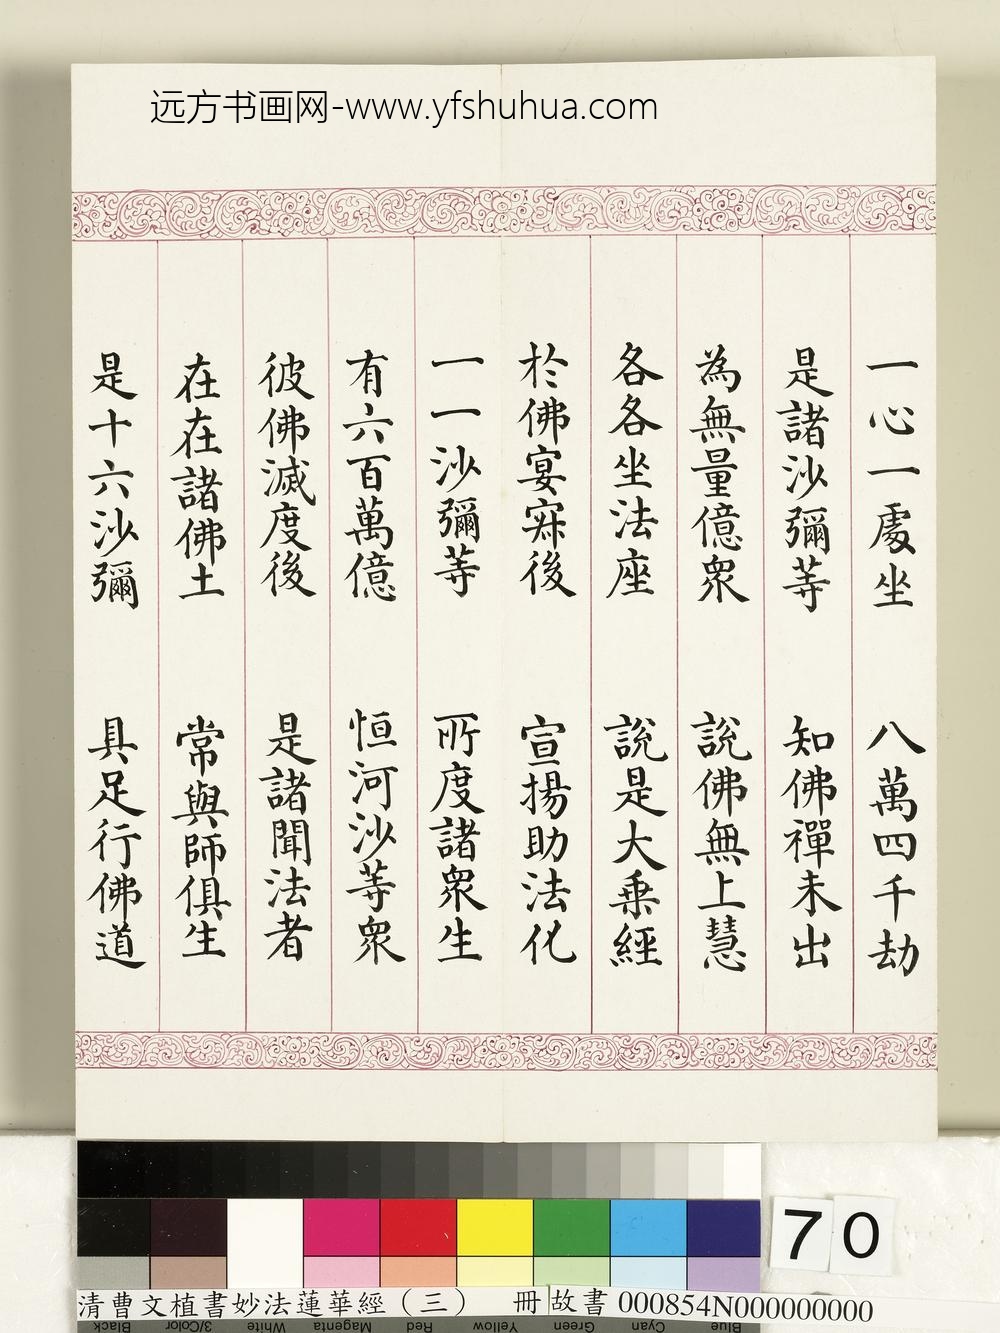 远方书画网-www.yfshuhua.com
一心一處坐 八萬四千劫
是諸沙彌等 知佛禪未出
為無量億眾 說佛無上慧
各各坐法座 說是大乗經
於佛宴寂後 宣揚助法化
一一沙彌等 所度諸眾生
有六百萬億 恒河沙等眾
彼佛滅度後 是諸聞法者
在在諸佛土 常與師俱生
是十六沙彌 具足行佛道
70
清曹文植書妙法蓮華經（三） 冊 故書 000854N000000000
Black 3/Color White Magenta Red Yellow Green Cyan Blue